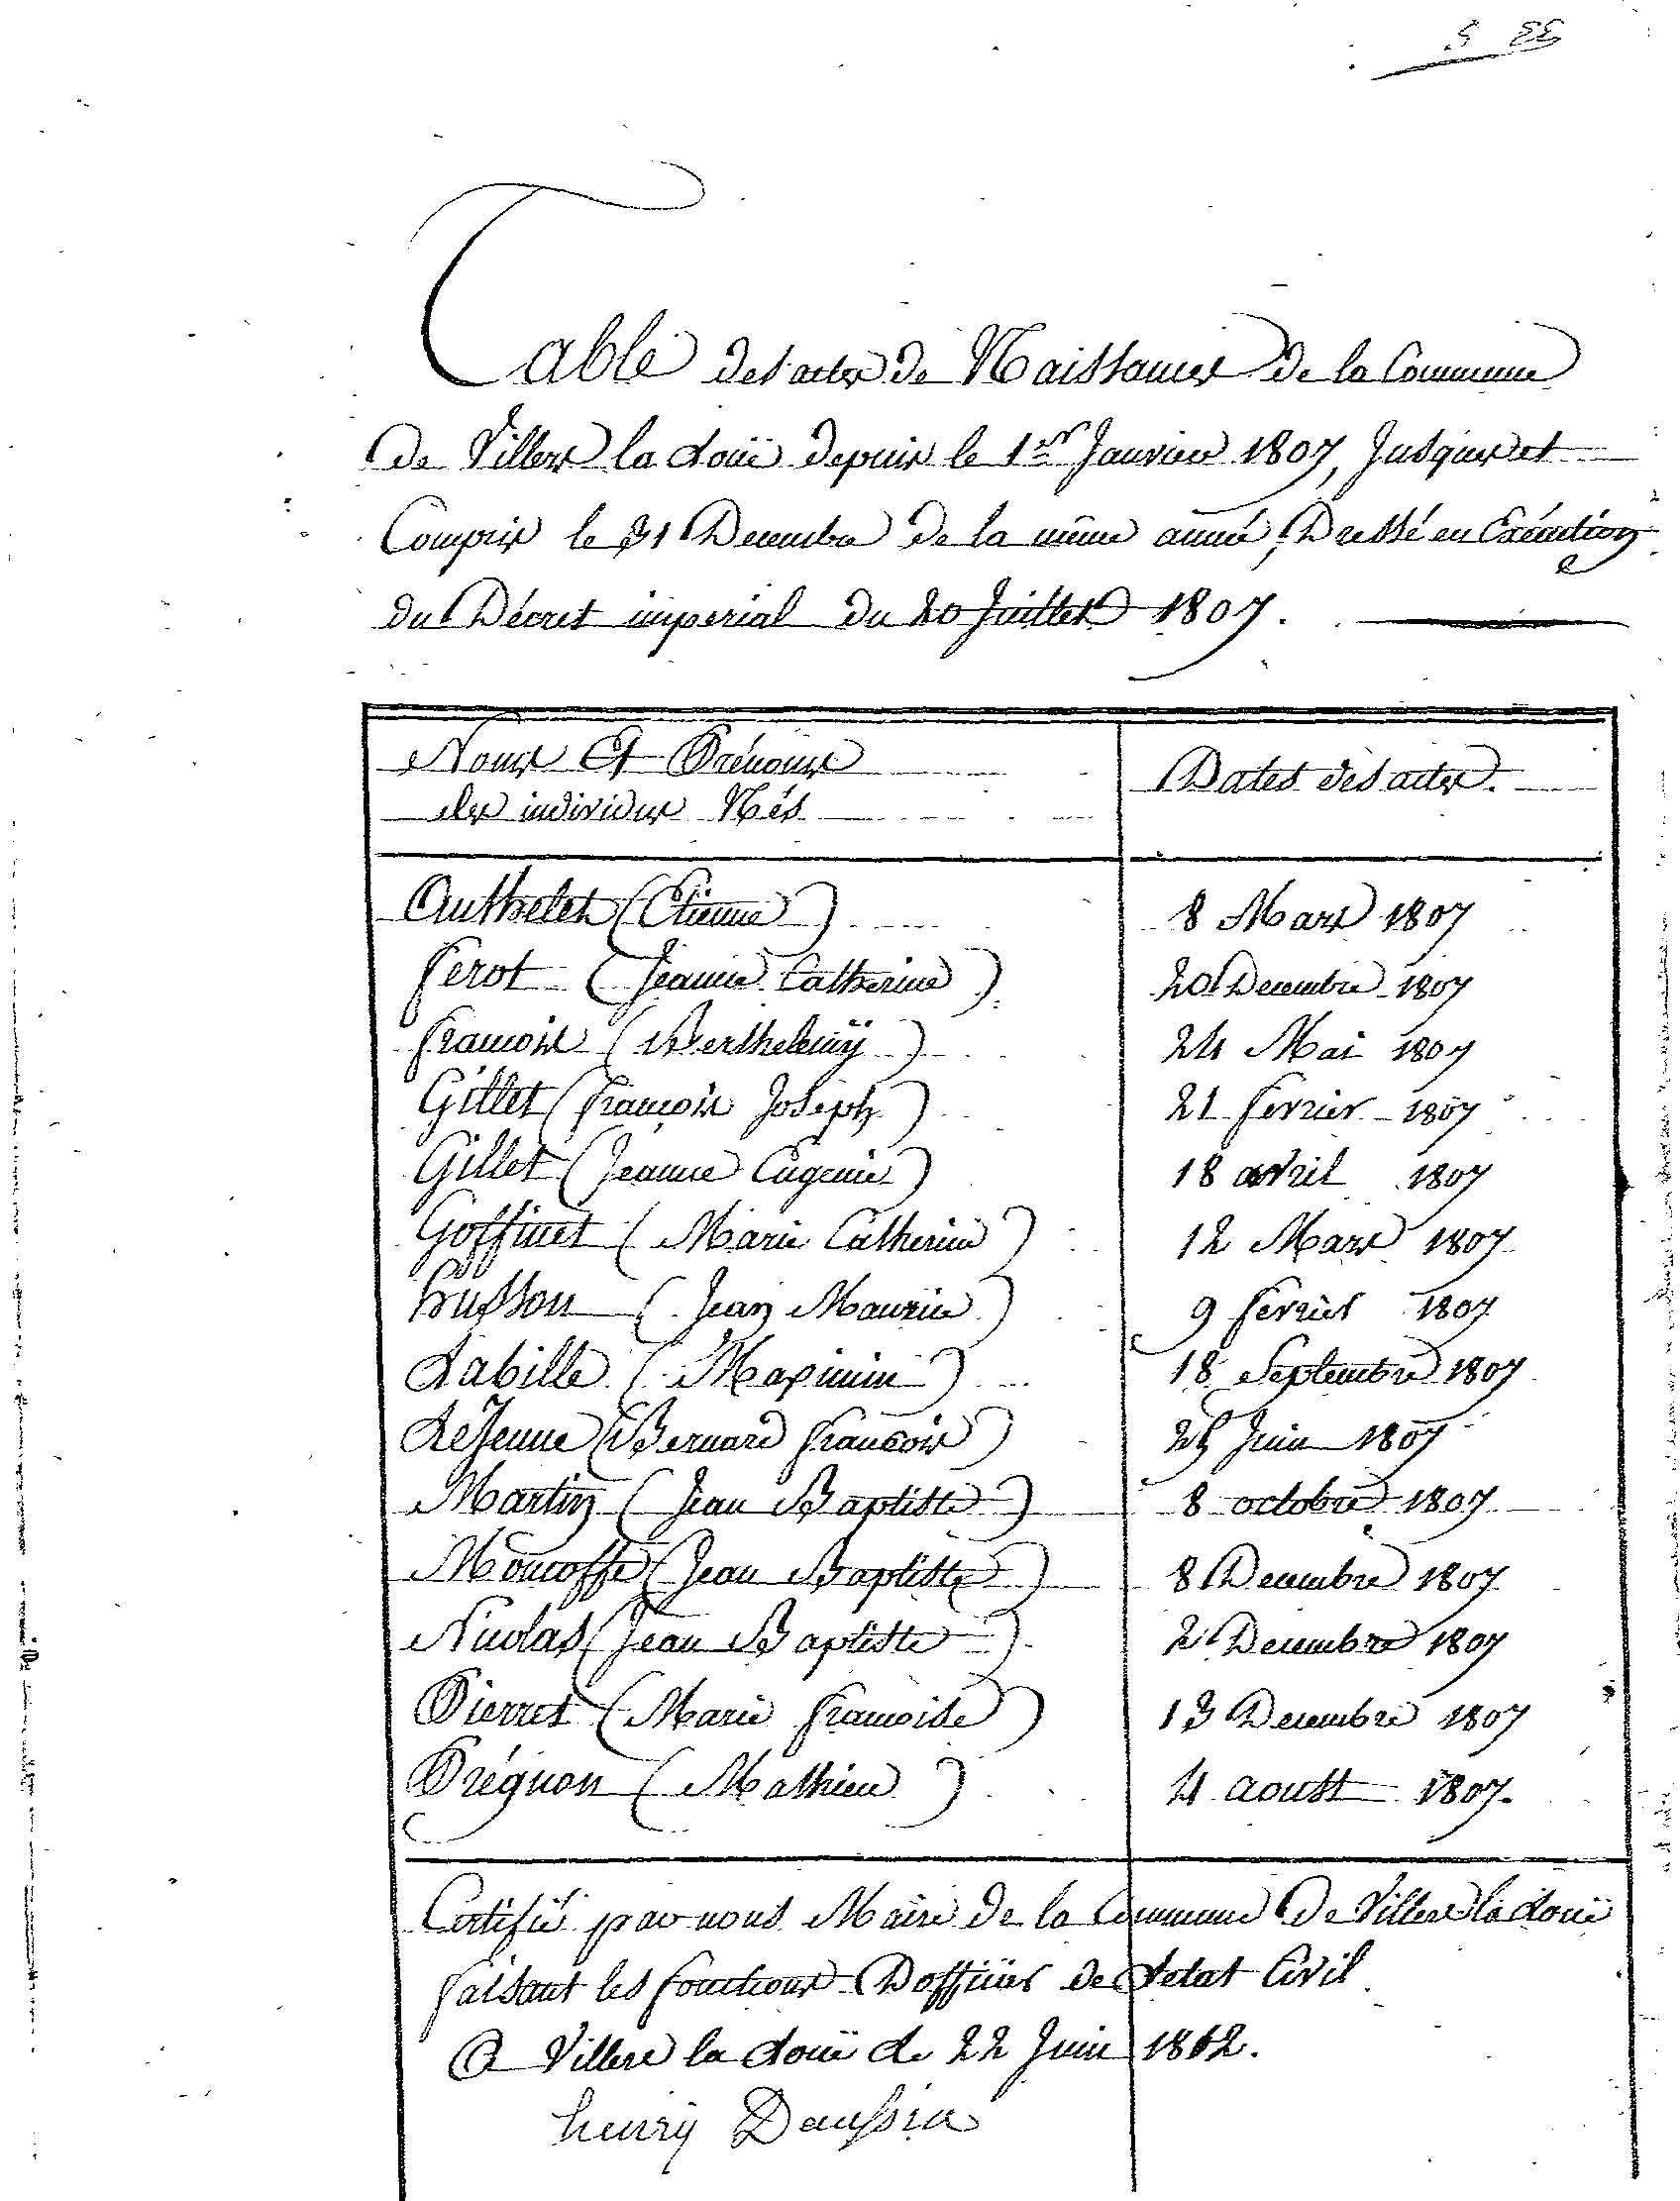 Table des actes de Naissances de la Commune
de Villers la doüe depuis le 1er Janvier 1807, Jusques et
Compris le 31 Decembre de la même année, Dressé en Exécution
du Décret imperial du 20 Juillet 1807.
Noms Et Prénoms
des individus Nés
Dates des actes.
Authelet (Etienne) 8 Mars 1807
ferot (Jeanne Catherine) 20 Decembre 1807
francois (Berthelemÿ) 24 Mai 1807
Gillet (françois Joseph) 21 fevrier 1807
Gillet (Jeanne Eugenie) 18 avril 1807
Goffinet (Marie Catherine) 12 Mars 1807
husson (Jean Maurice) 9 fevrier 1807
Labille (Maximin) 18 Septembre 1807
LeJeune (Bernard francois) 25 Juin 1807
Martin (Jean Baptiste) 8 octobre 1807
Moncoffe (Jean Baptiste) 8 Decembre 1807
Nicolas (Jean Baptiste) 2 Decembre 1807
Pierret (Marie francoise) 13 Decembre 1807
Prégnon (Mathieu) 4 aoust 1807.
Certifié par nous Maire de la Commune De Villers la doüe
faisant les fonctions Dofficier de Letat Civil
A Villers la doüe Le 22 Juin 1812.
henry